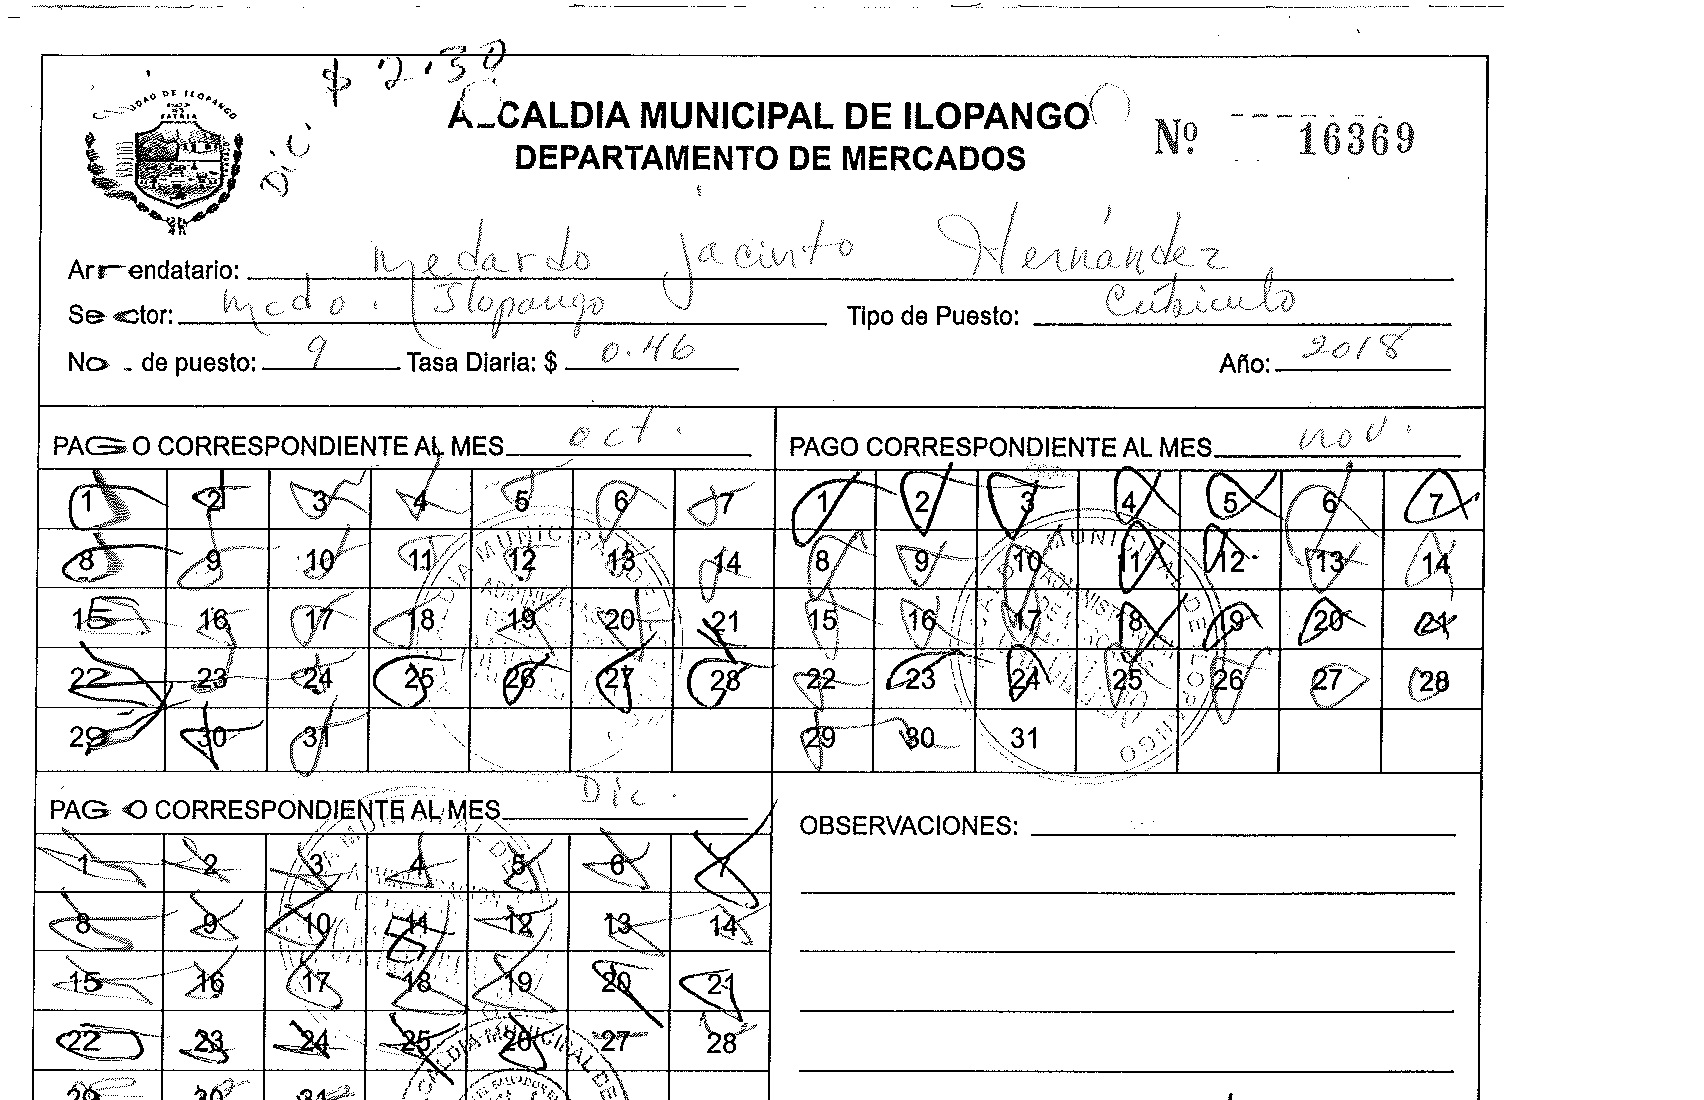 $ 2.30
Dic.
CIUDAD DE ILOPANGO
PATRIA
ALCALDIA MUNICIPAL DE ILOPANGO
DEPARTAMENTO DE MERCADOS
Nº 16369
Arrendatario: Medardo Jacinto Hernández
Sector: Mcdo. Ilopango Tipo de Puesto: Cubiculo
No. de puesto: 9 Tasa Diaria: $ 0.46 Año: 2018
PAGO CORRESPONDIENTE AL MES oct.
1 2 3 4 5 6 7
8 9 10 11 12 13 14
15 16 17 18 19 20 21
22 23 24 25 26 27 28
29 30 31
PAGO CORRESPONDIENTE AL MES nov.
1 2 3 4 5 6 7
8 9 10 11 12 13 14
15 16 17 18 19 20 21
22 23 24 25 26 27 28
29 30 31
PAGO CORRESPONDIENTE AL MES Dic.
1 2 3 4 5 6 7
8 9 10 11 12 13 14
15 16 17 18 19 20 21
22 23 24 25 26 27 28
29 30 31
OBSERVACIONES:
ALCALDIA MUNICIPAL DE